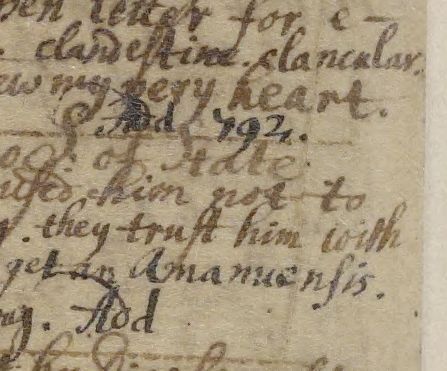 letter for e-
clandestine. clancular.
my very heart.
Add 792.
of State
him not to
they trust him with
get an Amanuensis.
Add